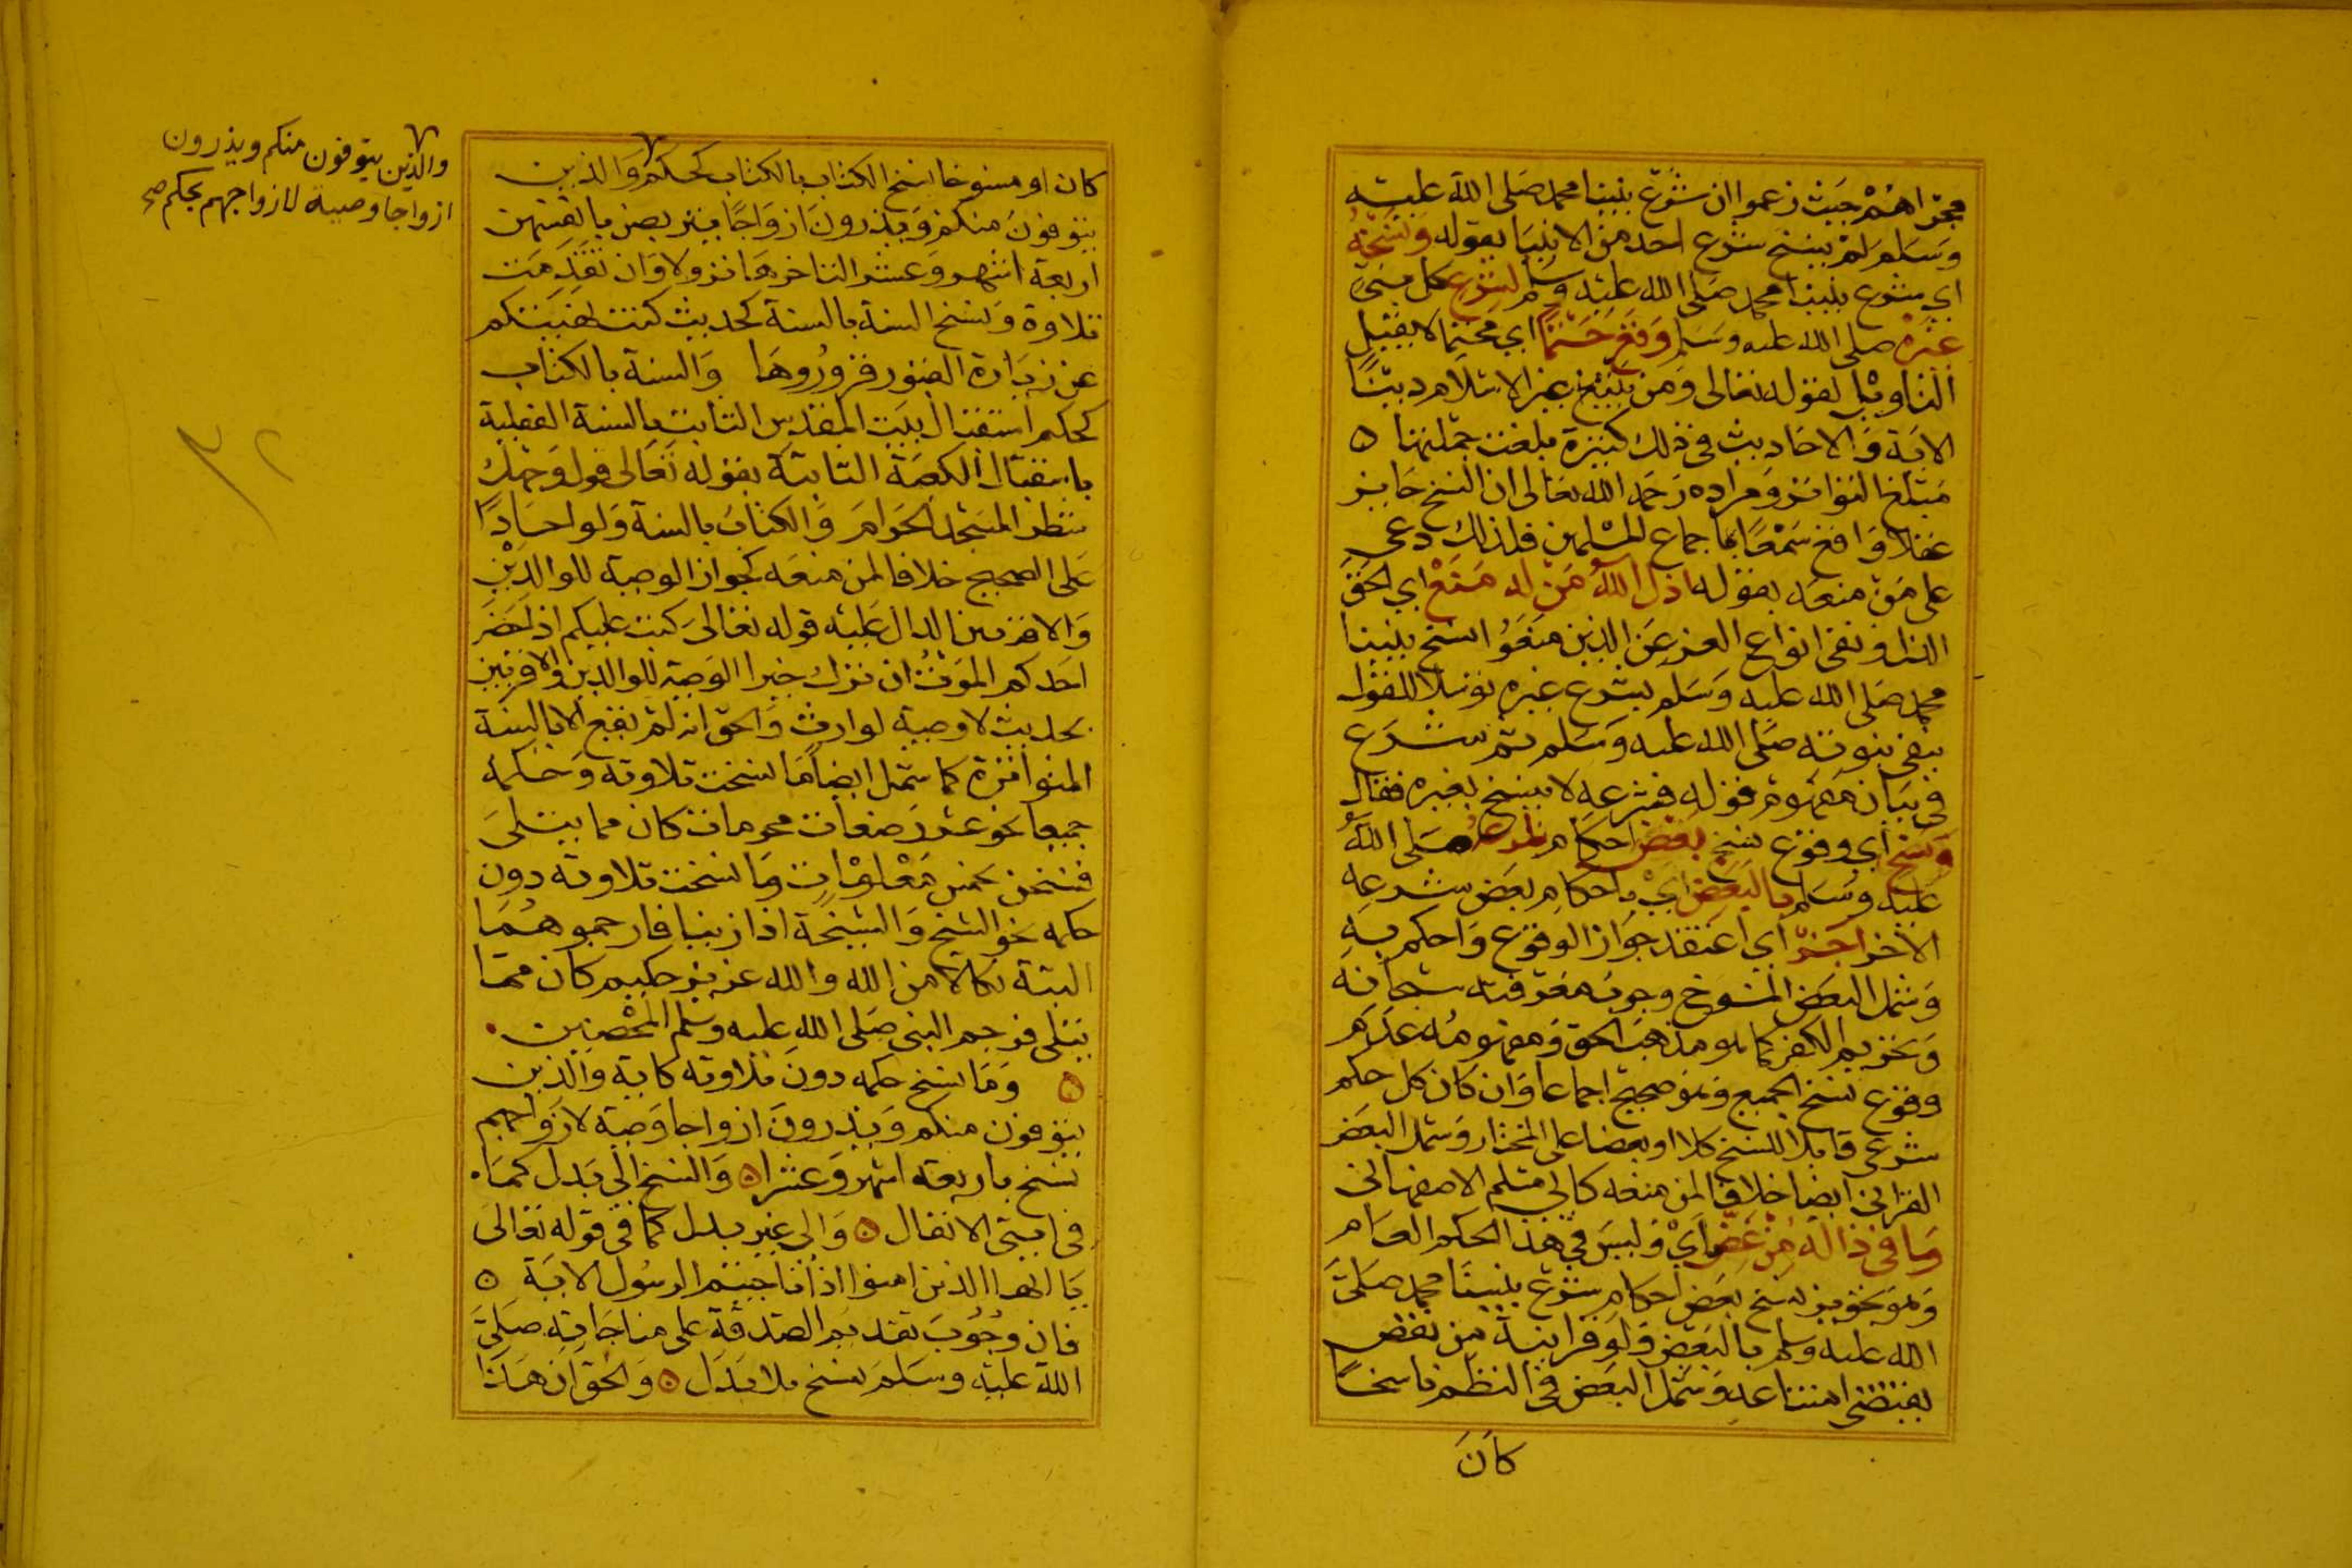 مجراهم حيث زعموا ان شرع نبينا محمد صلى الله عليه
وسلم لم ينسخ شرع احد من الانبيا بقوله ونسخه
اي شرع نبينا محمد صلى الله عليه وسلم لشرع كل نبي
غيره صلى الله عليه وسلم وقع حتما اي محتما لا يقبل
التاويل لقوله تعالى ومن يبتغ غير الاسلام دينا
الاية والاحاديث في ذلك كثيرة بلغت جملتها ه
مبلغ التواتر ومراده رحمه الله تعالى ان النسخ جايز
عقلا واقع سمعا باجماع المسلمين فلذلك دعى
على من منعه بقوله اذل الله من له منع اي الحق
الذل ونفى انواع العز عن الذين منعوا نسخ نبينا
محمد صلى الله عليه وسلم بشرع غيره توسلا للقول
بنفي نبوته صلى الله عليه وسلم ثم شرع
في بيان مفهوم قوله فشرعه لا ينسخ بغيره فقال
ونسخ اي وقوع نسخ بعض احكام شرعه صلى الله
عليه وسلم بالبعض اي باحكام بعض شرعه
الاخر اجز اي اعتقد جواز الوقوع واحكم به
وشمل البعض المنسوخ وجوب معرفته سبحانه
وتحريم الكفر كما هو مذهب الحق ومفهومه عدم
وقوع نسخ الجميع وهو صحيح اجماعا وان كان كل حكم
شرعي قابلا للنسخ كلا او بعضا على المختار وشمل البعض
القراني ايضا خلافا لمن منعه كابي مسلم الاصفهاني
وما في ذا له من غض اي وليس في هذا الحكم العام
وهو تجويز نسخ بعض احكام شرع نبينا محمد صلى
الله عليه وسلم بالبعض ولو قرانية من نقص
يقتضي امتناعه وشمل البعض في النظم ناسخا
كان
كان او منسوخا نسخ الكتاب بالكتاب كحكم والذين
يتوفون منكم ويذرون ازواجا يتربصن بانفسهن
اربعة اشهر وعشرا لتاخرها نزولا وان تقدمت
تلاوة ونسخ السنة بالسنة كحديث كنت نهيتكم
عن زيارة القبور فزوروها والسنة بالكتاب
كحكم استقبال بيت المقدس الثابت بالسنة الفعلية
باستقبال الكعبة الثابتة بقوله تعالى فول وجهك
شطر المسجد الحرام والكتاب بالسنة ولو احادا
على الصحيح خلافا لمن منعه كجواز الوصية للوالدين
والاقربين الدال عليه قوله تعالى كتب عليكم اذا حضر
احدكم الموت ان ترك خيرا الوصية للوالدين والاقربين
بحديث لا وصية لوارث والحق انه لم يقع الا بالسنة
المتواترة كما شمل ايضا ما نسخت تلاوته وحكمه
جميعا نحو عشر رضعات محرمات كان مما يتلى
فنسخن بخمس معلومات وما نسخت تلاوته دون
حكمه نحو الشيخ والشيخة اذا زنيا فارجموهما
البتة نكالا من الله والله عزيز حكيم كان مما
يتلى فرجم النبي صلى الله عليه وسلم المحصنين
ه وما نسخ حكمه دون تلاوته كاية والذين
يتوفون منكم ويذرون ازواجا وصية لازواجهم
نسخ باربعة اشهر وعشرا ه والنسخ الى بدل كما
في ايتي الانفال ه والى غير بدل كما في قوله تعالى
يا ايها الذين امنوا اذا ناجيتم الرسول الاية ه
فان وجوب تقديم الصدقة على مناجاته صلى
الله عليه وسلم نسخ بلا بدل ه والحق ان هذا
والذين يتوفون منكم ويذرون
ازواجا وصية لازواجهم بحكم صح